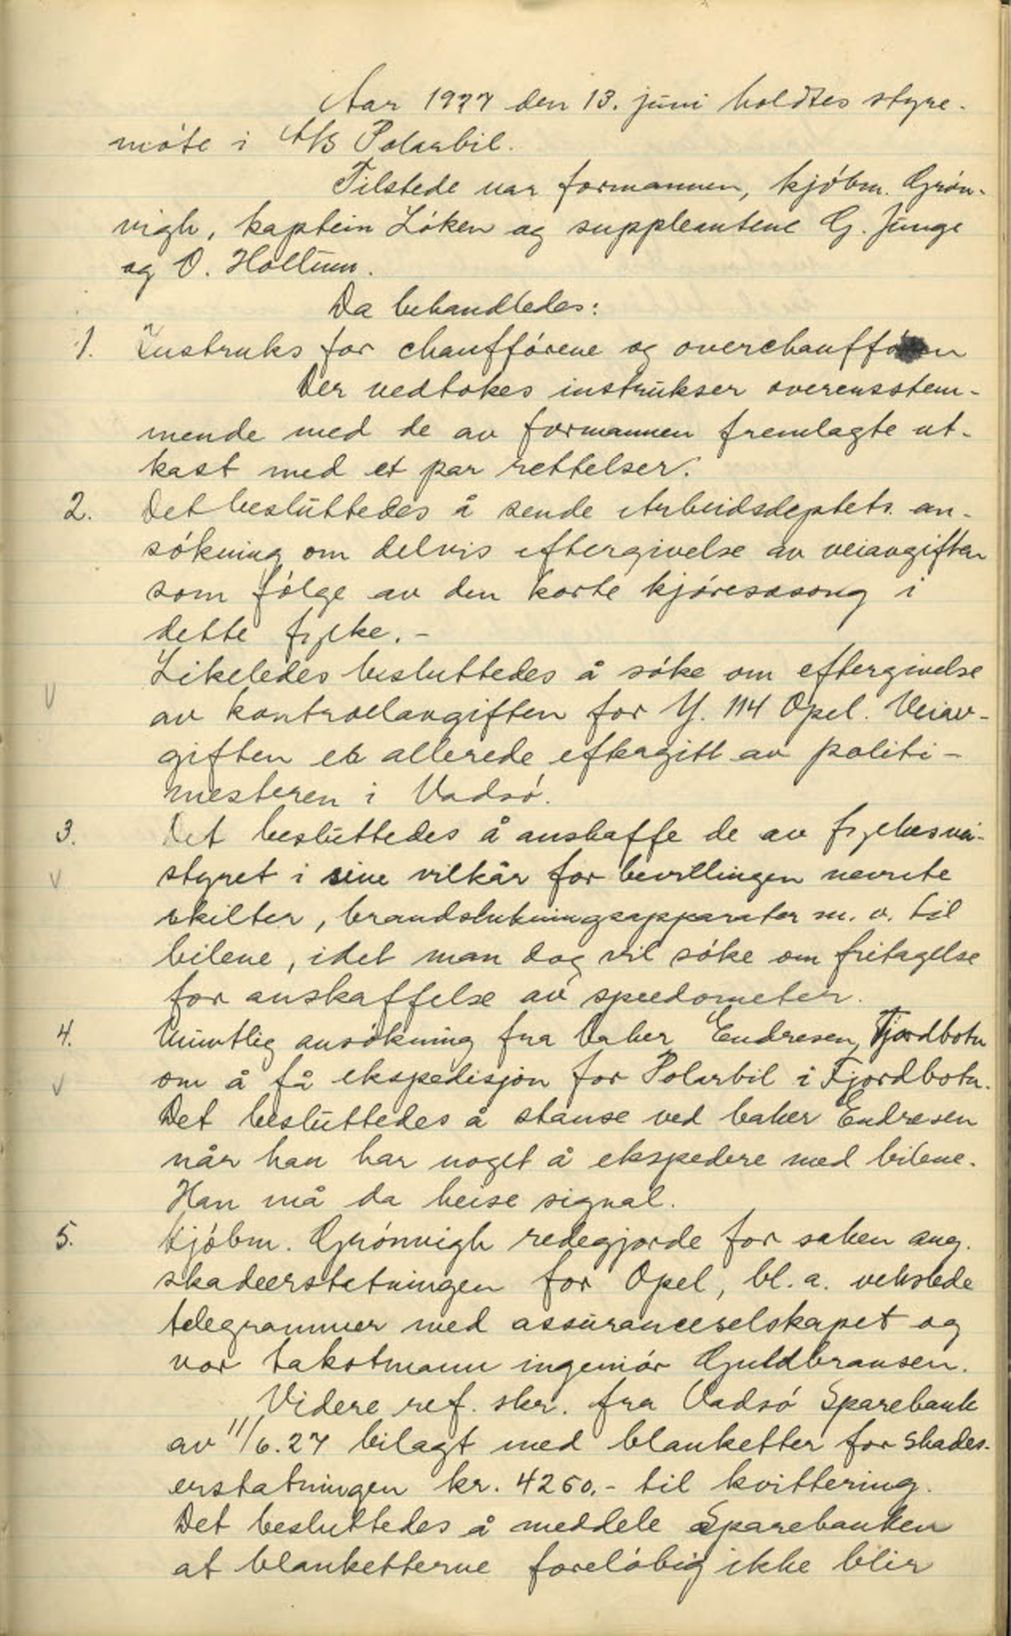 Aar 1927 den 13. juni holdtes styre-
möte i A/S Polarbil.
Tilstede var formannen, kjöbm. Grön-
vigh, kaptein Löken og suppleantene G. Junge
og O. Holtum.
Da behandledes:
1. Instruks for chauffórene og overchauffören
Der vedtokes instrukser overensstem-
mende med de av formannen fremlagte ut-
kast med et par rettelser.
2. Det besluttedes å sende Arbeidsdeptets. an-
sökning om delvis eftergivelse av veiavgiften
som fölge av den korte kjöresesong i
dette fylke. -
Likeledes besluttedes å söke om eftergivelse
V av kontrollavgiften for Y. 114 Opel. Veiav-
giften er allerede eftergitt av politi-
mesteren i Vadsö.
3. Det besluttedes å anskaffe de av fylkesvei-
V styret i sine vilkår for bevillingen nevnte
skilter, brandslukningsapparater m. v. til
bilene, idet man dog vil söke om fritagelse
for anskaffelse av speedometer.
4. Muntlig ansökning fra baker Endresen, Fjordbotn
V om å få ekspedisjon for Polarbil i Fjordbotn.
Det besluttedes å stanse ved baker Endresen
når han har noget å ekspedere med bilene.
Han må da heise signal.
5. Kjöbm. Grönvigh redegjorde for saken ang.
skadeerstatningen for Opel, bl. a. vekslede
telegrammer med assuranceselskapet og
vor takstmann ingeniör Guldbransen.
Videre ref. skr. fra Vadsö Sparebank
av 11/6.27 bilagt med blanketter for skades-
erstatningen kr. 4250.- til kvittering.
Det besluttedes å meddele Sparebanken
at blanketterne forelöbig ikke blir